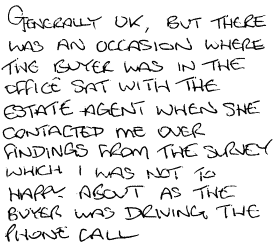 GENERALLY OK, BUT THERE
WAS AN OCCASION WHERE
THE BUYER WAS IN THE
OFFICE SAT WITH THE
ESTATE AGENT WHEN SHE
CONTACTED ME OVER
FINDINGS FROM THE SURVEY
WHICH I WAS NOT TO
HAPPY ABOUT AS THE
BUYER WAS DRIVING THE
PHONE CALL